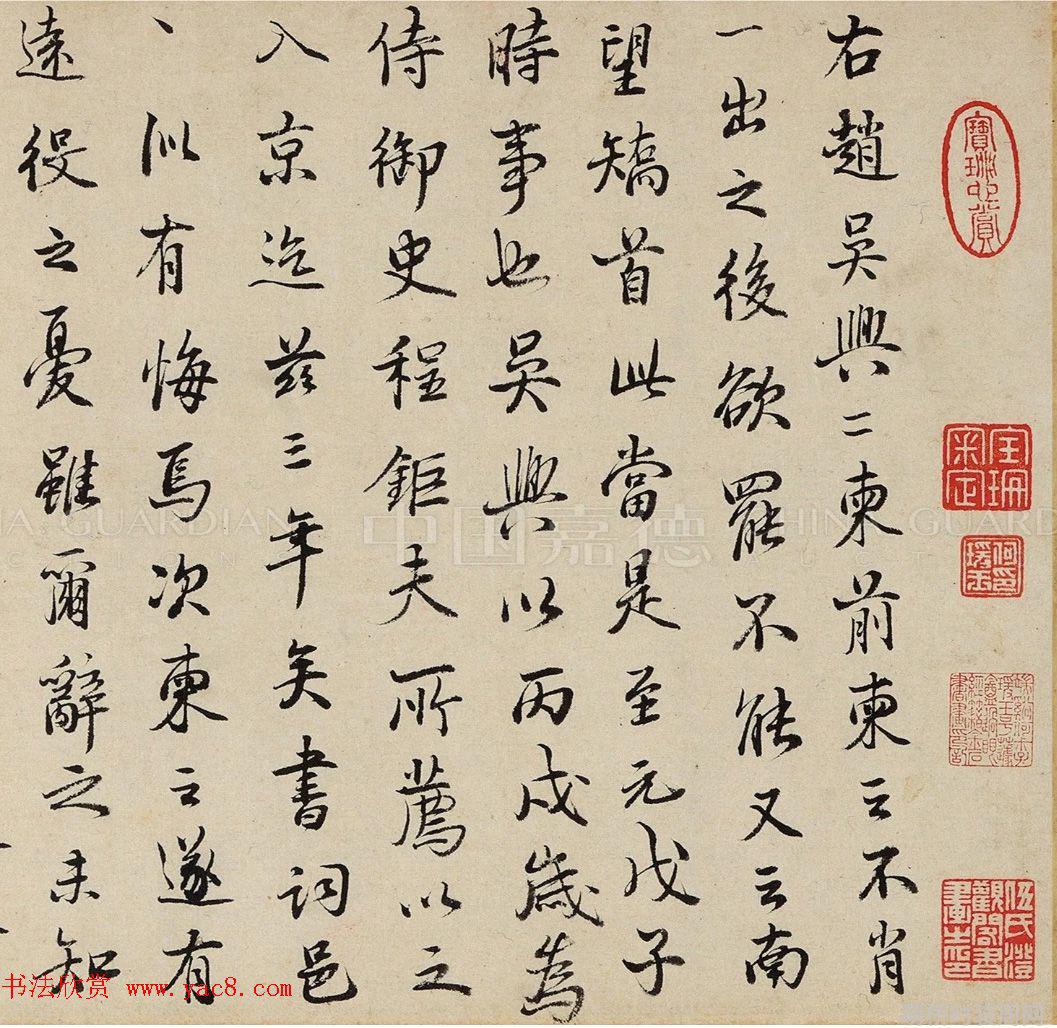 右趙吳興二柬前柬云不肖
一出之後欲罷不能又云南
望矯首此當是至元戊子
時事也吳興以丙戌歲為
侍御史程鉅夫所薦以之
入京迄茲三年矣書詞邑
丶似有悔焉次柬云遂有
遠役之憂雖爾辭之未知
中国嘉德
CHINA GUARDIAN
书法欣赏 www.yac8.com
伍氏澄觀閣書畫之印